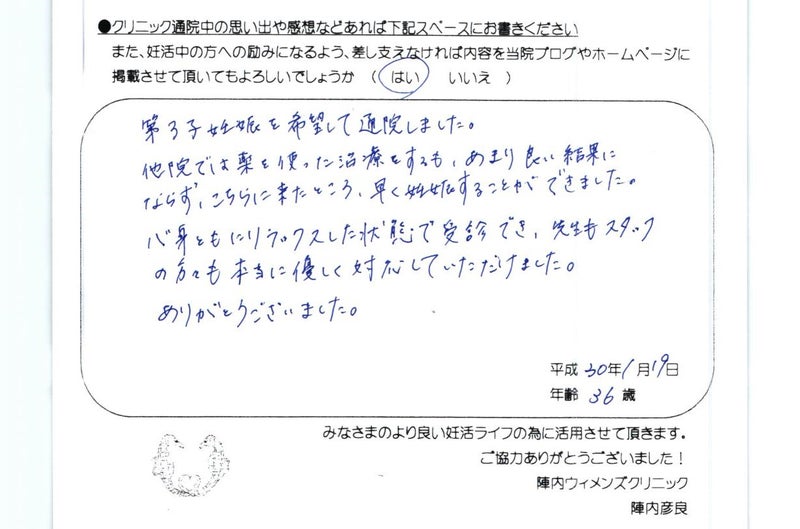 ●クリニック通院中の思い出や感想などあれば下記スペースにお書きください
また、妊活中の方への励みになるよう、差し支えなければ内容を当院ブログやホームページに
掲載させて頂いてもよろしいでしょうか （ はい　いいえ ）
第3子妊娠を希望して通院しました。
他院では薬を使った治療をするも、あまり良い結果に
ならず、こちらに来たところ、早く妊娠することができました。
心身ともにリラックスした状態で受診でき、先生もスタッフ
の方々も本当に優しく対応していただけました。
ありがとうございました。
平成 30年 1月 19日
年齢 36 歳
みなさまのより良い妊活ライフの為に活用させて頂きます。
ご協力ありがとうございました！
陣内ウィメンズクリニック
陣内彦良